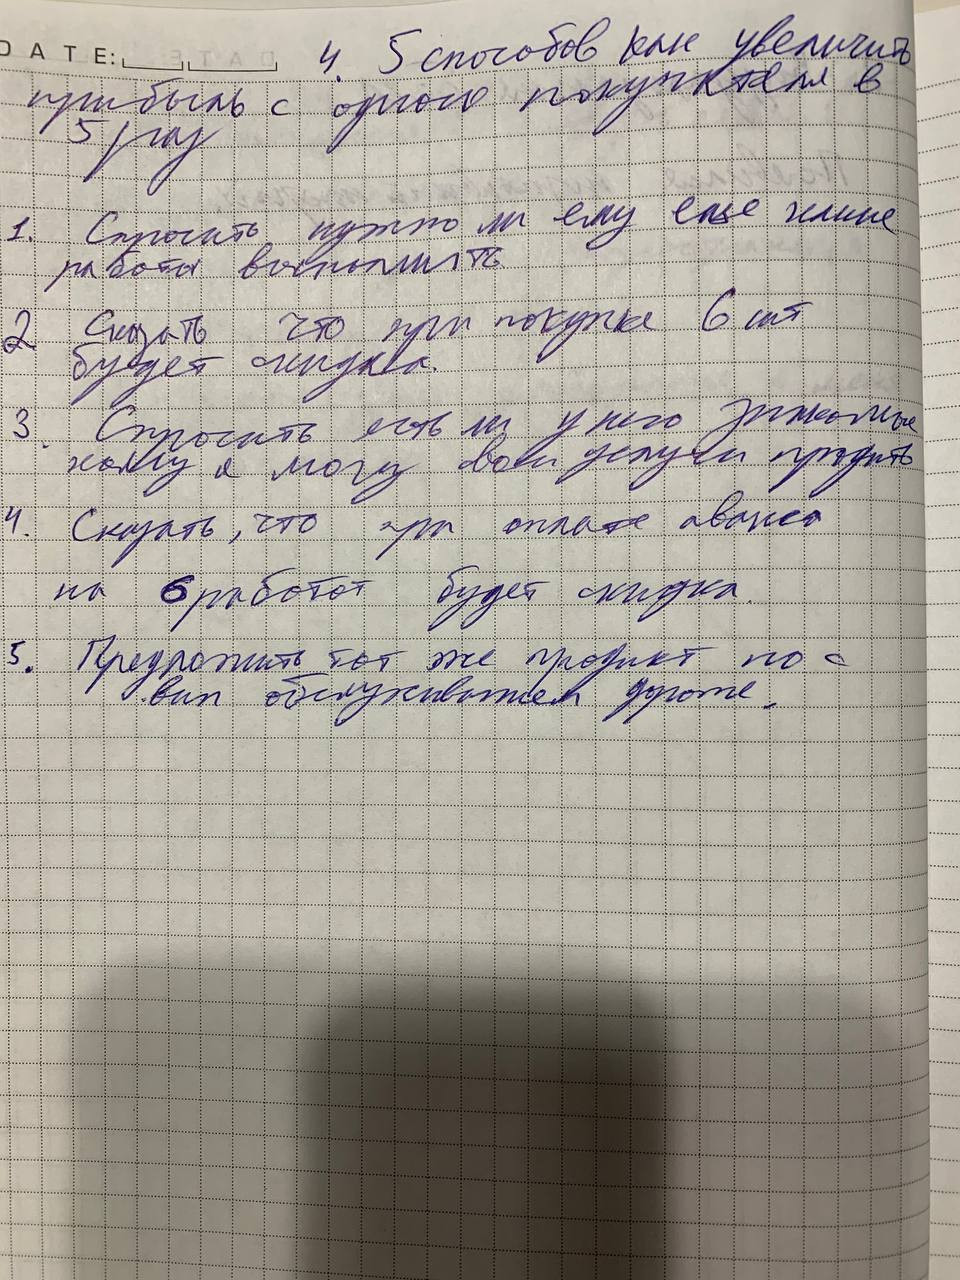 DATE:
4. 5 способов как увеличить
прибыль с одного покупателя в
5 раз
1. Спросить нужно ли ему еще какие
работы восполнить
2 Сказать что при покупке 6 шт
будет скидка.
3. Спросить есть ли у него знакомые
кому я могу свои услуги продать
4. Сказать, что при оплате аванса
на 6 работот будет скидка.
5. Предложить тот же продукт но с
вип обслуживанием дороже.